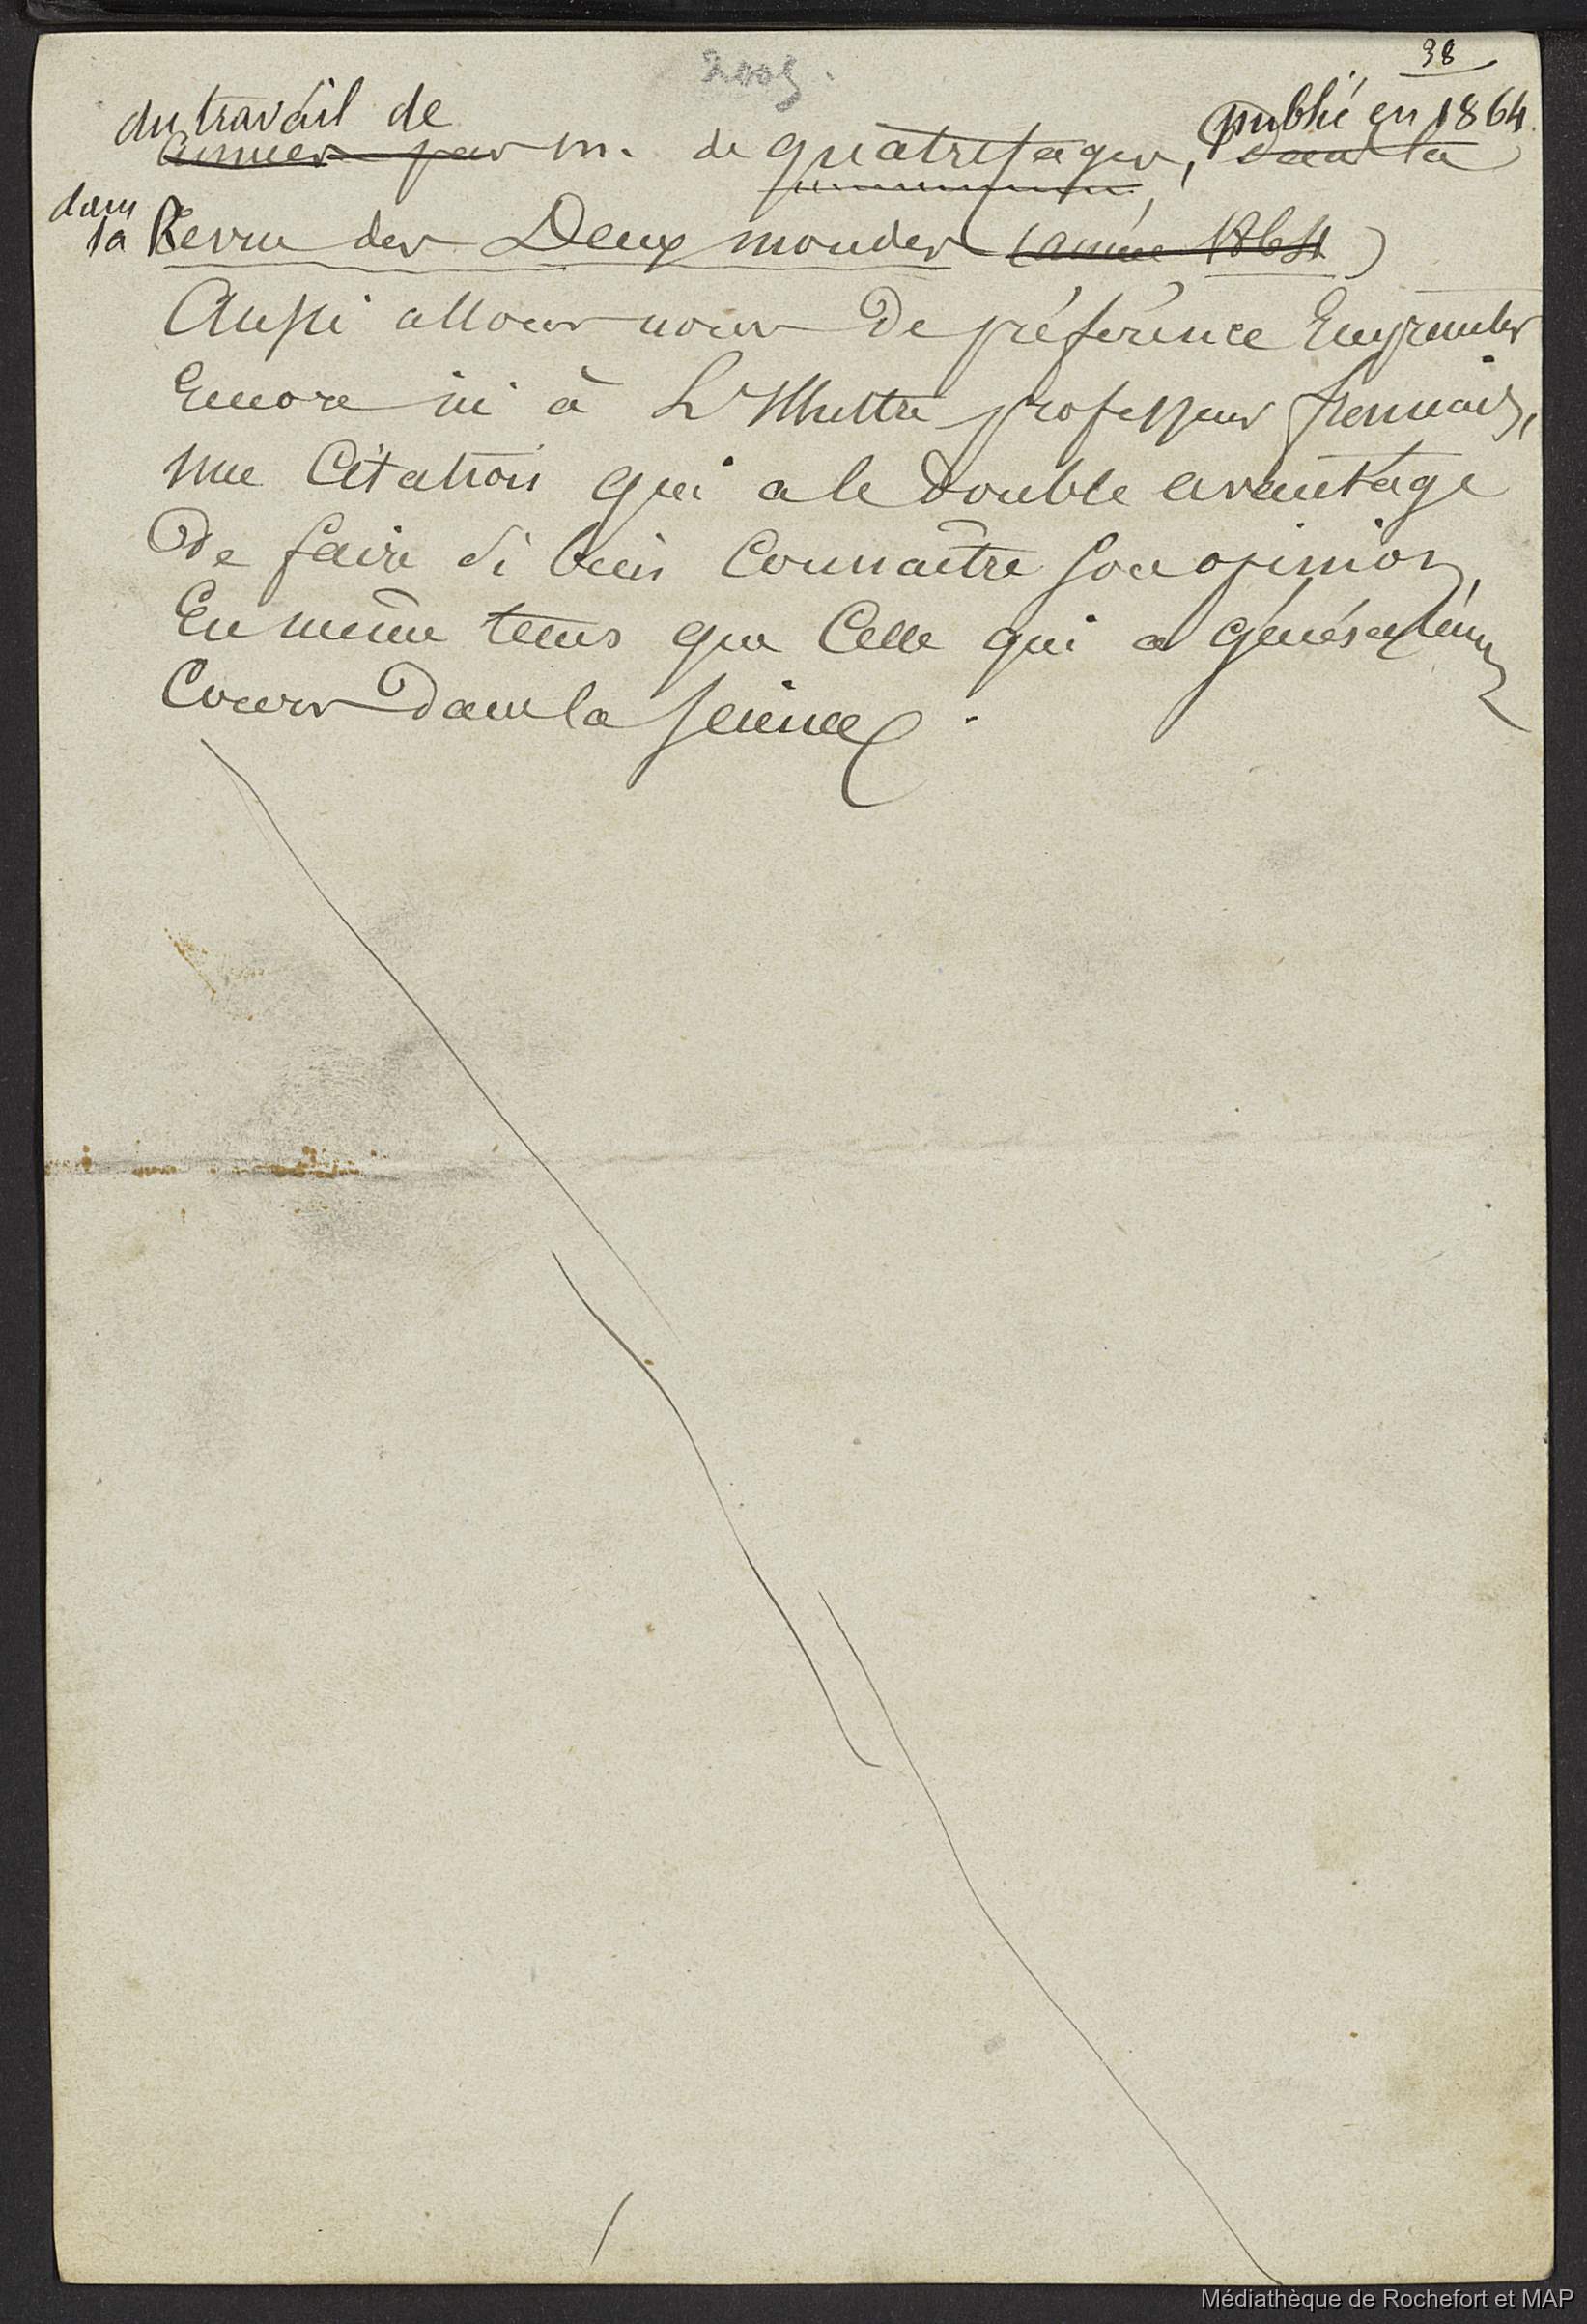 38
2005.
du travail de
années par m. de quatrefages, publié en 1864.
dans la
dans
la Revue des Deux mondes (année 1864)
Aussi allons nous De préférence Emprunter
Encore ici à L'Illustre professeur français,
une Citation qui a le double avantage
De faire si bien Connaître son opinion,
En même tems que Celle qui a généralemt
Cours Dans la science.
Médiathèque de Rochefort et MAP